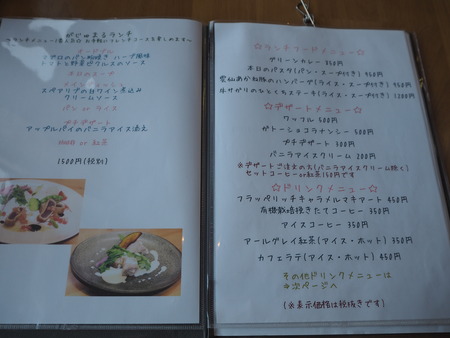 がじゅまるランチ
オードブル
トマトと野菜ピクルスのソース
本日のスープ
スペアリブの白ワイン煮込み
クリームソース
パン or ライス
プチデザート
アップルパイのバニラアイス添え
珈琲 or 紅茶
1500円(税別)
☆ランチフードメニュー☆
グリーンカレー 850円
本日のパスタ(パン・スープ付き) 950円
雲仙あかね豚のハンバーグ(ライス・スープ付き) 950円
牛サガリのひとくちステーキ(ライス・スープ付き) 1200円
☆デザートメニュー☆
ワッフル 500円
ガトーショコラナンシー 500円
プチデザート 300円
バニラアイスクリーム 200円
※デザートご注文の方(バニラアイスクリーム除く)
セットコーヒーor紅茶150円です
☆ドリンクメニュー☆
フラッペリッチキャラメルマキアート 450円
有機栽培挽きたてコーヒー 350円
アイスコーヒー 350円
アールグレイ紅茶(アイス・ホット) 350円
カフェラテ(アイス・ホット) 450円
その他ドリンクメニューは
⇒次ページへ
(※表示価格は税抜きです)